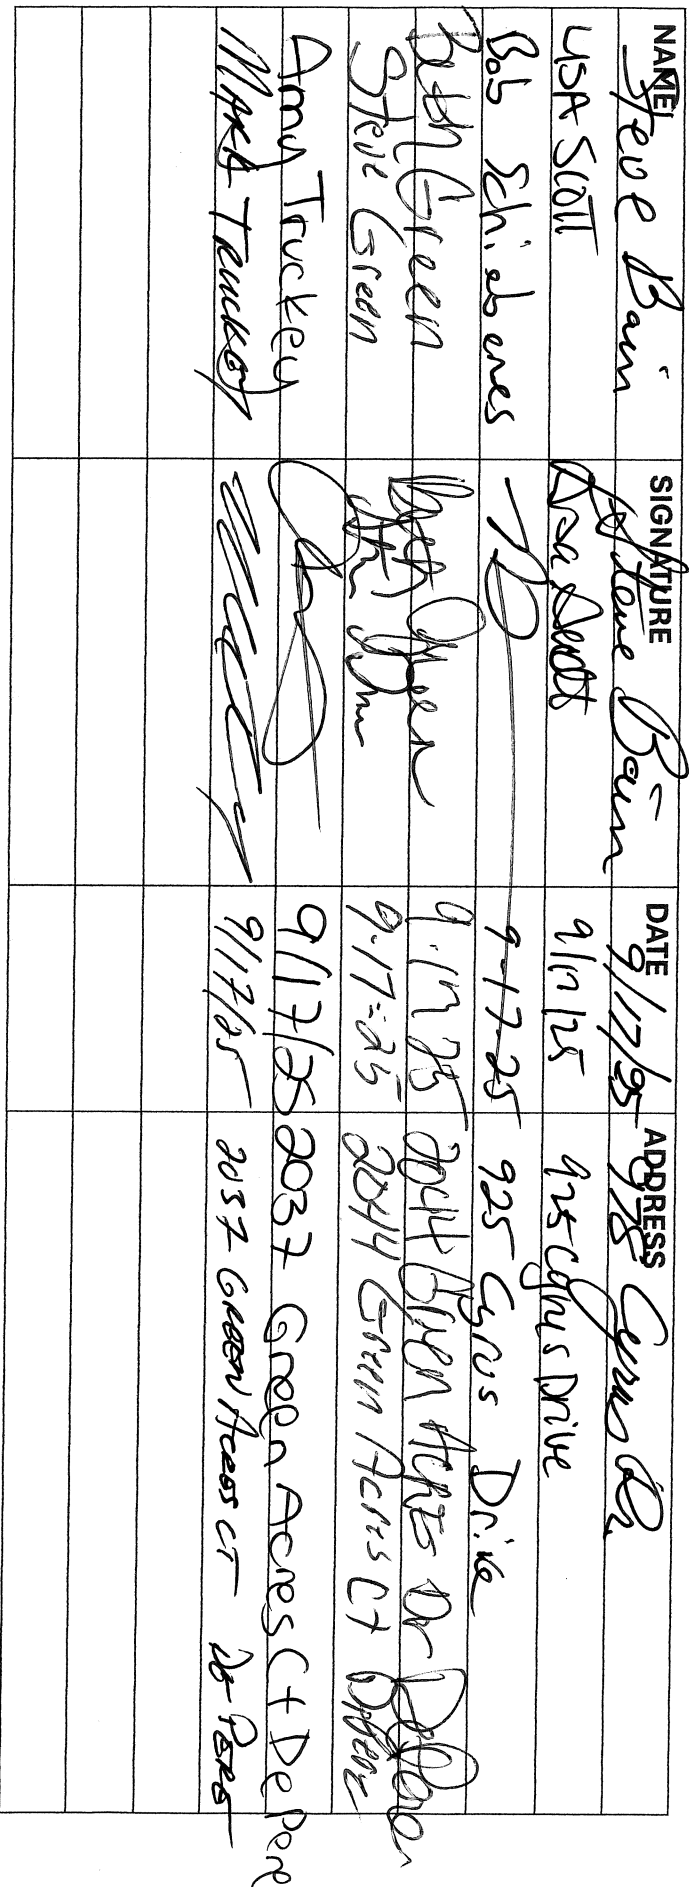 NAME SIGNATURE DATE ADDRESS
Steve Bain Steve Bain 9/17/25 978 Cyrus Dr
LISA SCOTT Lisa Scott 9/17/25 925 Cyrus Drive
Bob 9-17-25 925 Cyrus Drive
Beth Green Beth Green 9.17.25 2044 Green Acres Dr DePere
Steve Green 9-17-25 2044 Green Acres Ct Depere
Amy Truckey 9/17/25 2037 Green Acres Ct De Pere
MARK TRUCKEY 9/17/25 2037 GREEN ACRES CT DE PERE